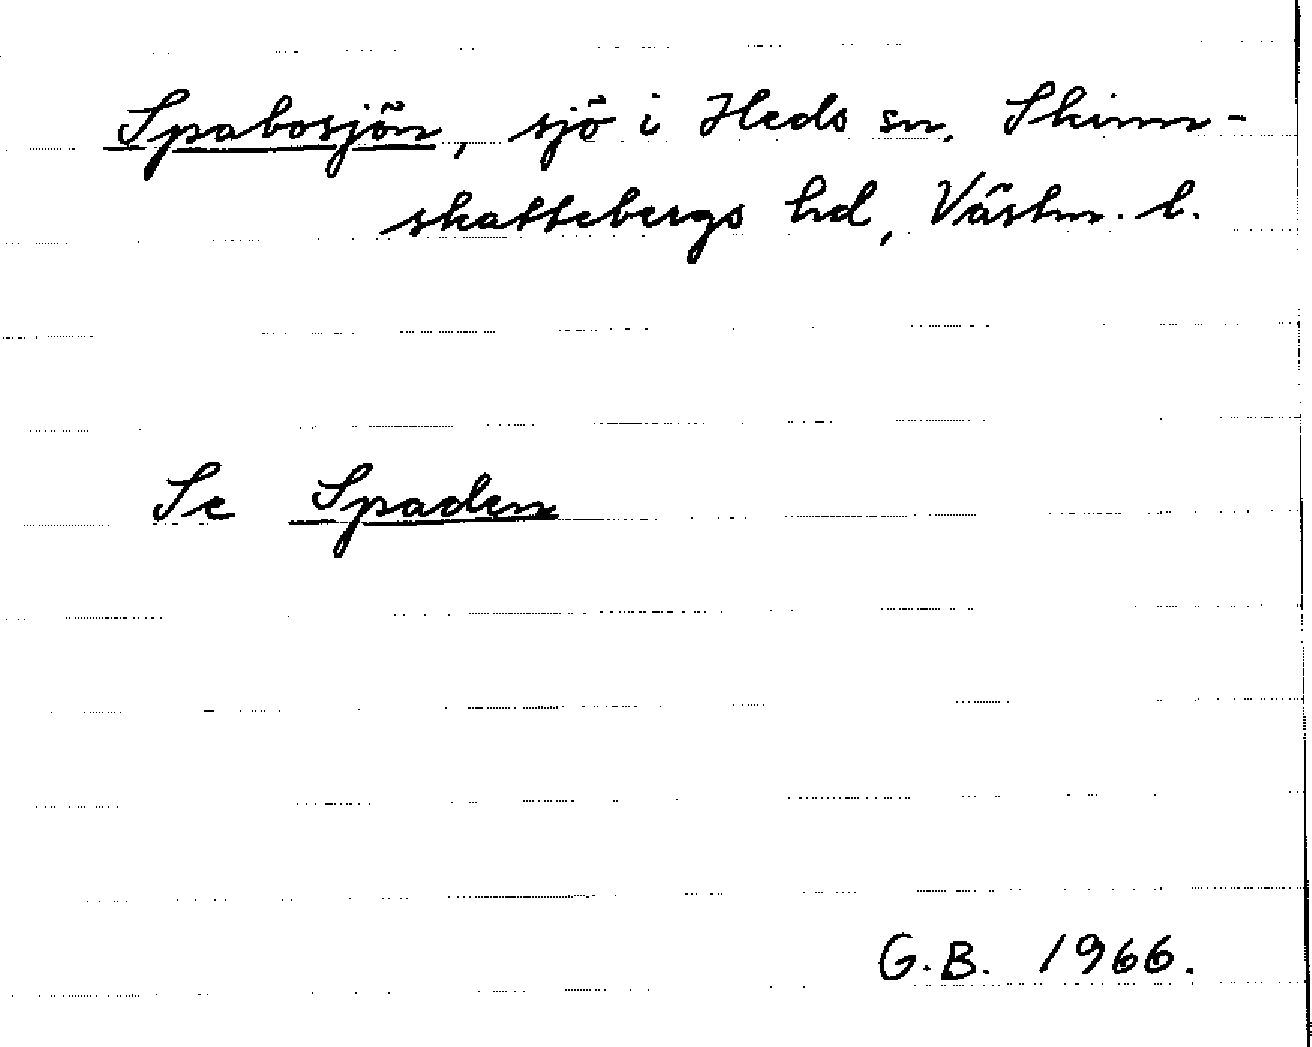 Spabosjön, sjö i Heds sn, Skinn-
skattebergs hd, Västm. l.
Se Spaden
G.B. 1966.